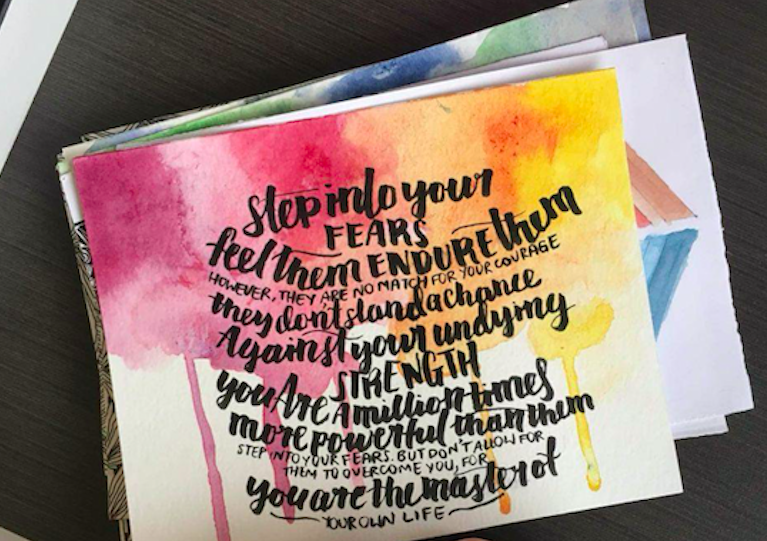 step into your
FEARS
feel them ENDURE them
HOWEVER, THEY ARE NO MATCH FOR YOUR COURAGE
they don't stand a chance
Against your undying
STRENGTH
you Are A million times
more powerful than them
STEP INTO YOUR FEARS. BUT DON'T ALLOW FOR
THEM TO OVERCOME YOU, FOR
you are the master of
YOUR OWN LIFE